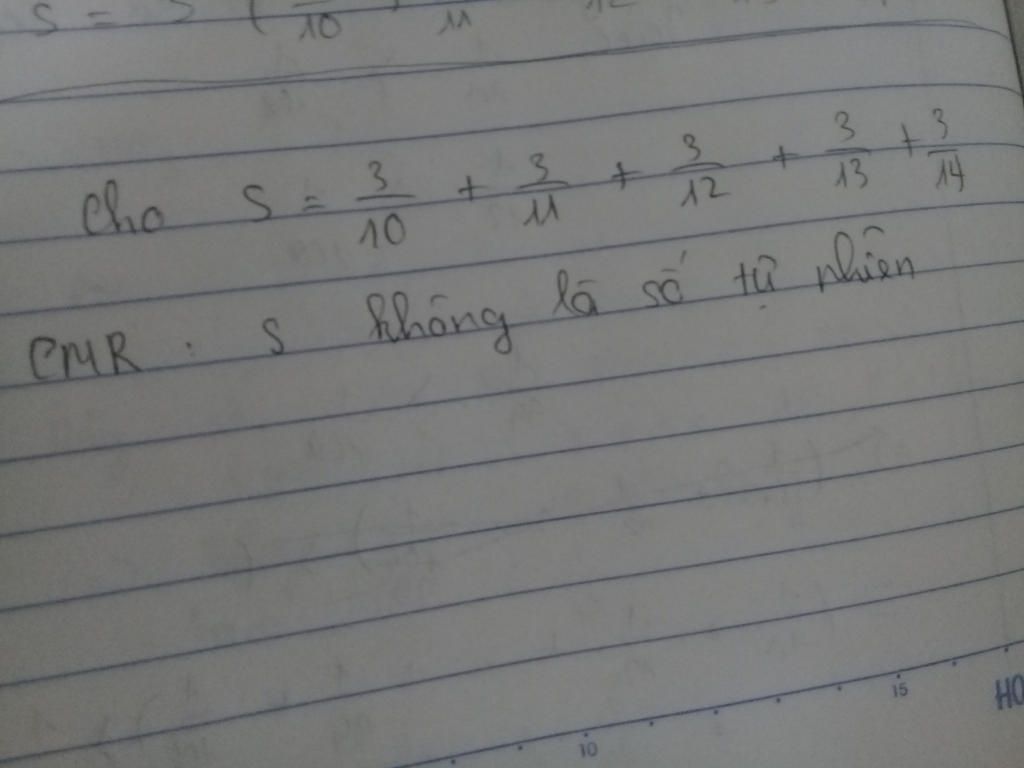 S = 3 ( /10 11 12
Cho S = 3/10 + 3/11 + 3/12 + 3/13 + 3/14
CMR : S không là số tự nhiên
15 HO
10